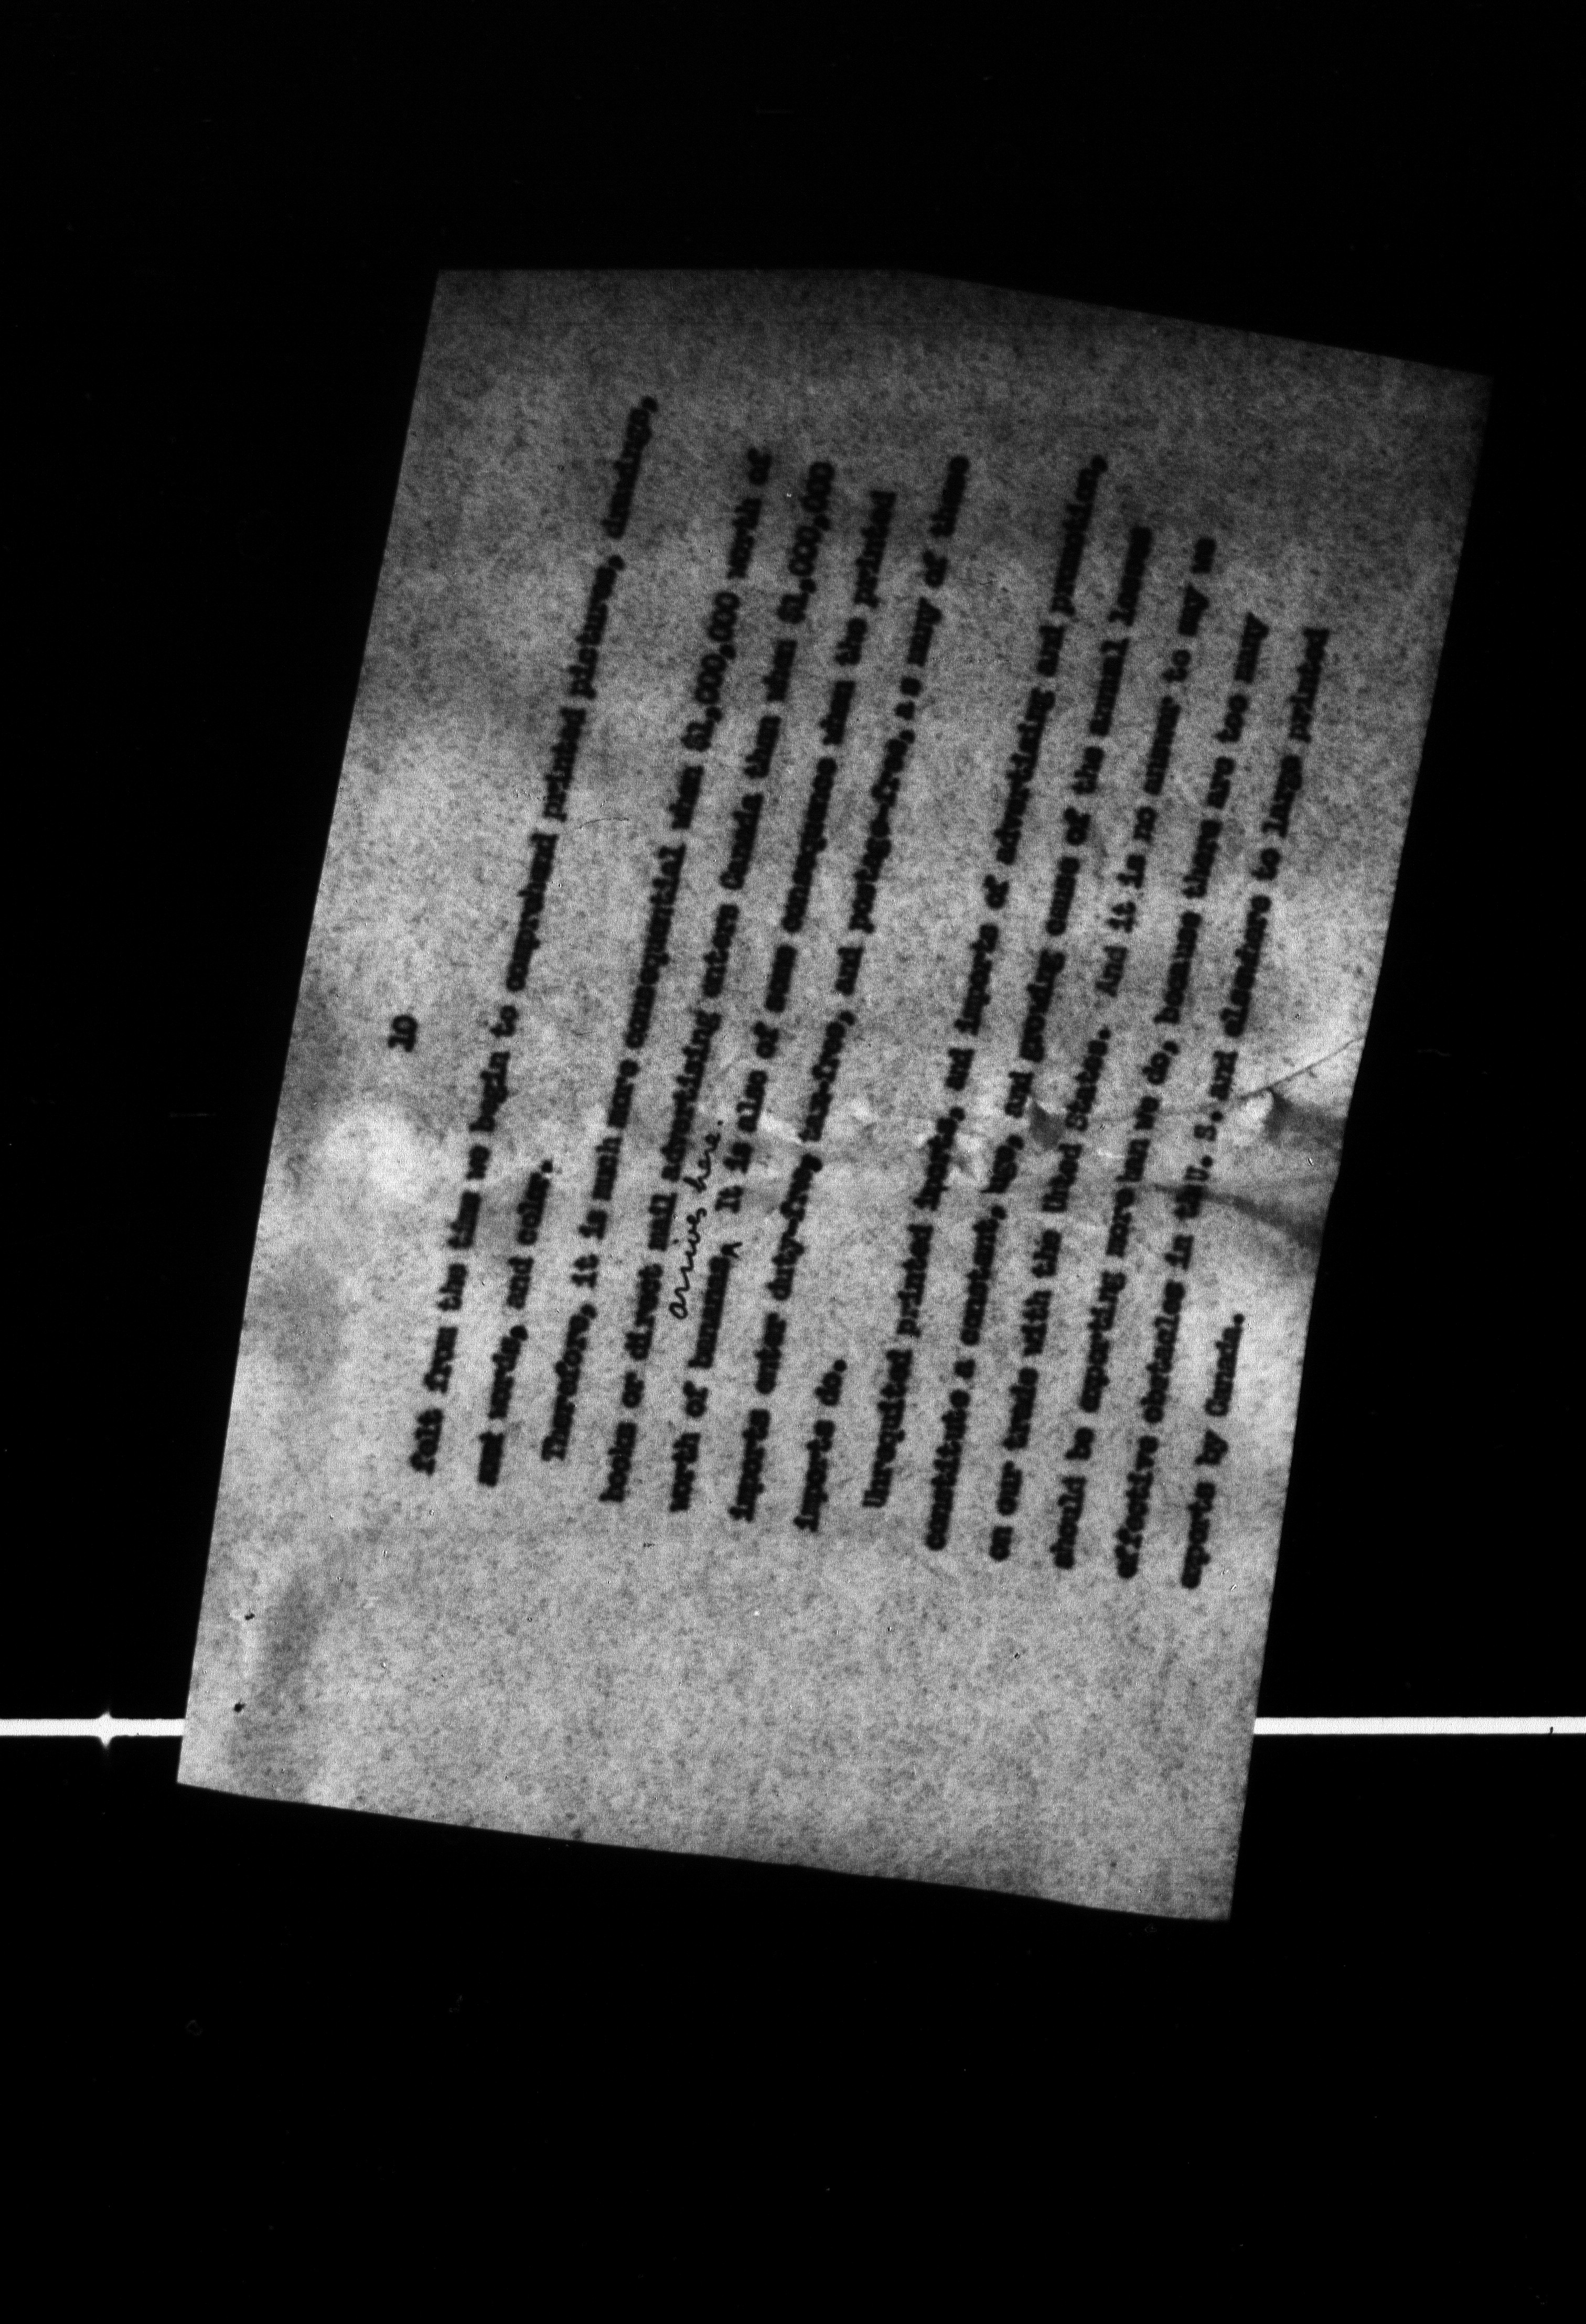 10
felt from the time we begin to comprehend printed pictures, drawings,
and words, and color.
Therefore, it is much more consequential when $1,000,000 worth of
books or direct mail advertising enters Canada than when $1,000,000
arrives here.
worth of bananas^ It is also of some consequence when the printed
imports enter duty-free, tax-free, and postage-free, as many of these
imports do.
Unrequited printed imports, and imports of advertising and promotion,
constitute a constant, huge, and growing cause of the annual losses
on our trade with the United States. And it is no answer to say we
should be exporting more than we do, because there are too many
effective obstacles in the U. S. and elsewhere to large printed
exports by Canada.